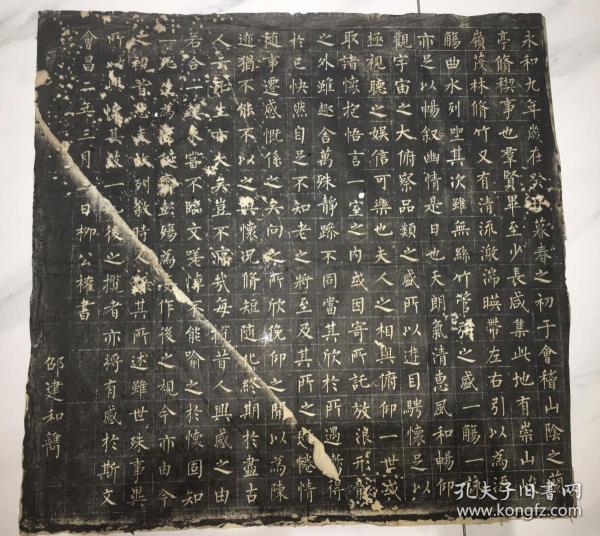 永和九年歲在癸丑暮春之初于會稽山陰之蘭
亭脩稧事也羣賢畢至少長咸集此地有崇山峻
嶺茂林脩竹又有清流激湍暎帶左右引以為流
觴曲水列坐其次雖無絲竹管弦之盛一觴一詠
亦足以暢叙幽情是日也天朗氣清惠風和暢仰
觀宇宙之大俯察品類之盛所以遊目騁懷足以
極視聽之娛信可樂也夫人之相與俯仰一世或
取諸懷抱悟言一室之内或因寄所託放浪形骸
之外雖趣舍萬殊靜躁不同當其欣於所遇暫得
於己快然自足不知老之將至及其所之既惓情
隨事遷感慨係之矣向之所欣俛仰之間以為陳
迹猶不能不以之興懷況脩短隨化終期於盡古
人云死生亦大矣豈不痛哉每攬昔人興感之由
若合一契未嘗不臨文嗟悼不能喻之於懷固知
一死生為虛誕齊彭殤為妄作後之視今亦由今
之視昔悲夫故列敘時人錄其所述雖世殊事異
所以興懷其致一也後之攬者亦將有感於斯文
會昌二年三月日柳公權書
邵建和鐫
孔夫子旧書网
www.kongfz.com